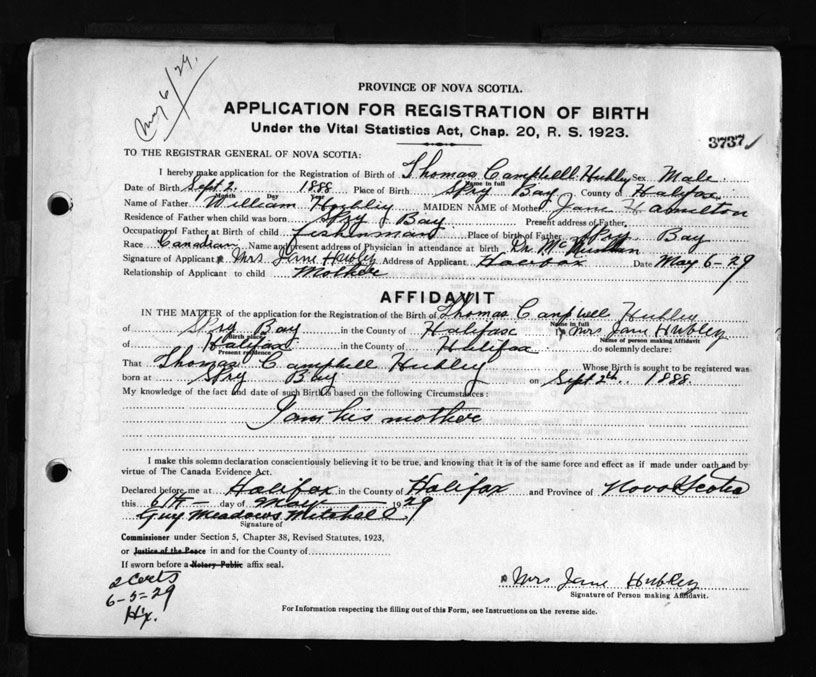 May 6/29.
PROVINCE OF NOVA SCOTIA.
APPLICATION FOR REGISTRATION OF BIRTH
Under the Vital Statistics Act, Chap. 20, R. S. 1923.
3737
TO THE REGISTRAR GENERAL OF NOVA SCOTIA:
I hereby make application for the Registration of Birth of Thomas Campbell Hubley Sex Male
Name in full
Date of Birth Sept 2. 1888 Place of Birth Spry Bay County of Halifax
Month Day Year
Name of Father William Hubley MAIDEN NAME of Mother Jane Hamilton
Residence of Father when child was born Spry Bay Present address of Father,
Occupation of Father at Birth of child fisherman Place of birth of Father Spry Bay
Race Canadian Name and present address of Physician in attendance at birth Dr. Mc
Signature of Applicant Mrs Jane Hubley Address of Applicant Halifax Date May 6-29
Relationship of Applicant to child Mother
AFFIDAVIT
IN THE MATTER of the application for the Registration of the Birth of Thomas Campbell Hubley
Name in full
of Spry Bay in the County of Halifax I, Mrs Jane Hubley
Birth place Name of person making Affidavit
of Halifax in the County of Halifax do solemnly declare:
Present residence
That Thomas Campbell Hubley Whose Birth is sought to be registered was
born at Spry Bay on Sept 2th. 1888.
My knowledge of the fact and date of such Birth is based on the following Circumstances:
I am his mother
I make this solemn declaration conscientiously believing it to be true, and knowing that it is of the same force and effect as if made under oath and by
virtue of The Canada Evidence Act.
Declared before me at Halifax in the County of Halifax and Province of Nova Scotia
this 6th day of May 1929
Guy Meadows Mitchell
Signature of
Commissioner under Section 5, Chapter 38, Revised Statutes, 1923,
or Justice of the Peace in and for the County of
If sworn before a Notary Public affix seal.
2 Certs
6-5-29
Hx.
Mrs Jane Hubley
Signature of Person making Affidavit.
For Information respecting the filling out of this Form, see Instructions on the reverse side.